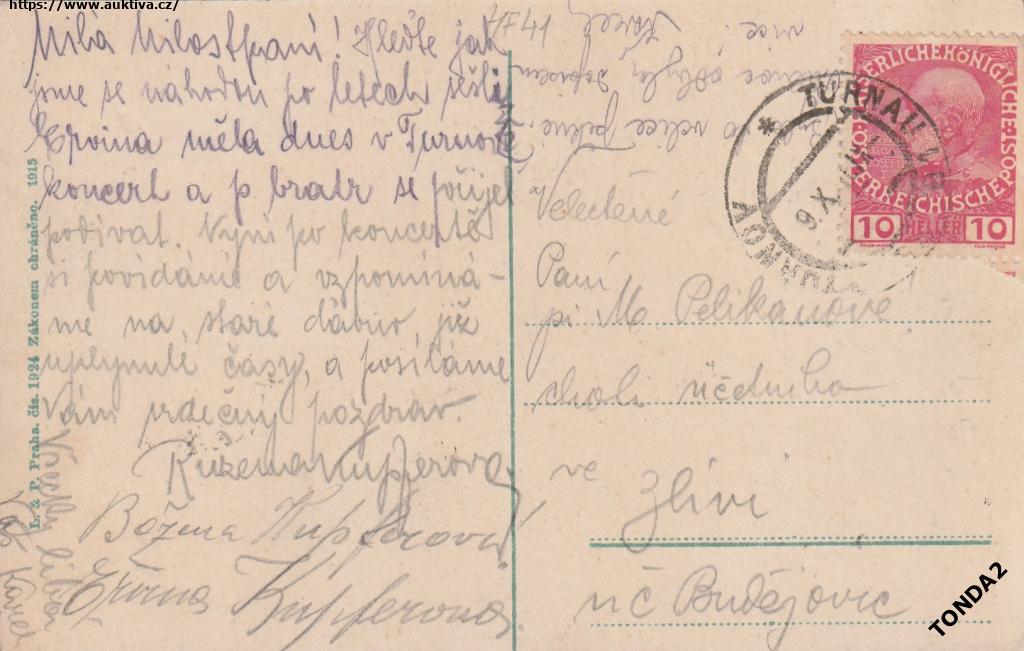 https://www.auktiva.cz/
Milá Milostpaní! Hleďte jak
jsme se náhodou po letech sešli
Ervina měla dnes v Turnově
koncert a p. bratr se přijel
podívat. Nyní po koncertě
si povídáme a vzpomíná-
me na staré dávno již
uplynulé časy, a posíláme
Vám srdečný pozdrav.
Růžena Kupferová
Božena Kupferová
Ervina Kupferova
Váš Karel
L. & P. Praha. čís. 1924 Zákonem chráněno. 1915
více. Karel
velice pěkné.
TURNAU
TURNOV
9.X.
10 HELLER 10
Velectěné
Paní
pí M Pelikanové
choti účetního
ve Zlivi
u Č Budějovic
TONDA2